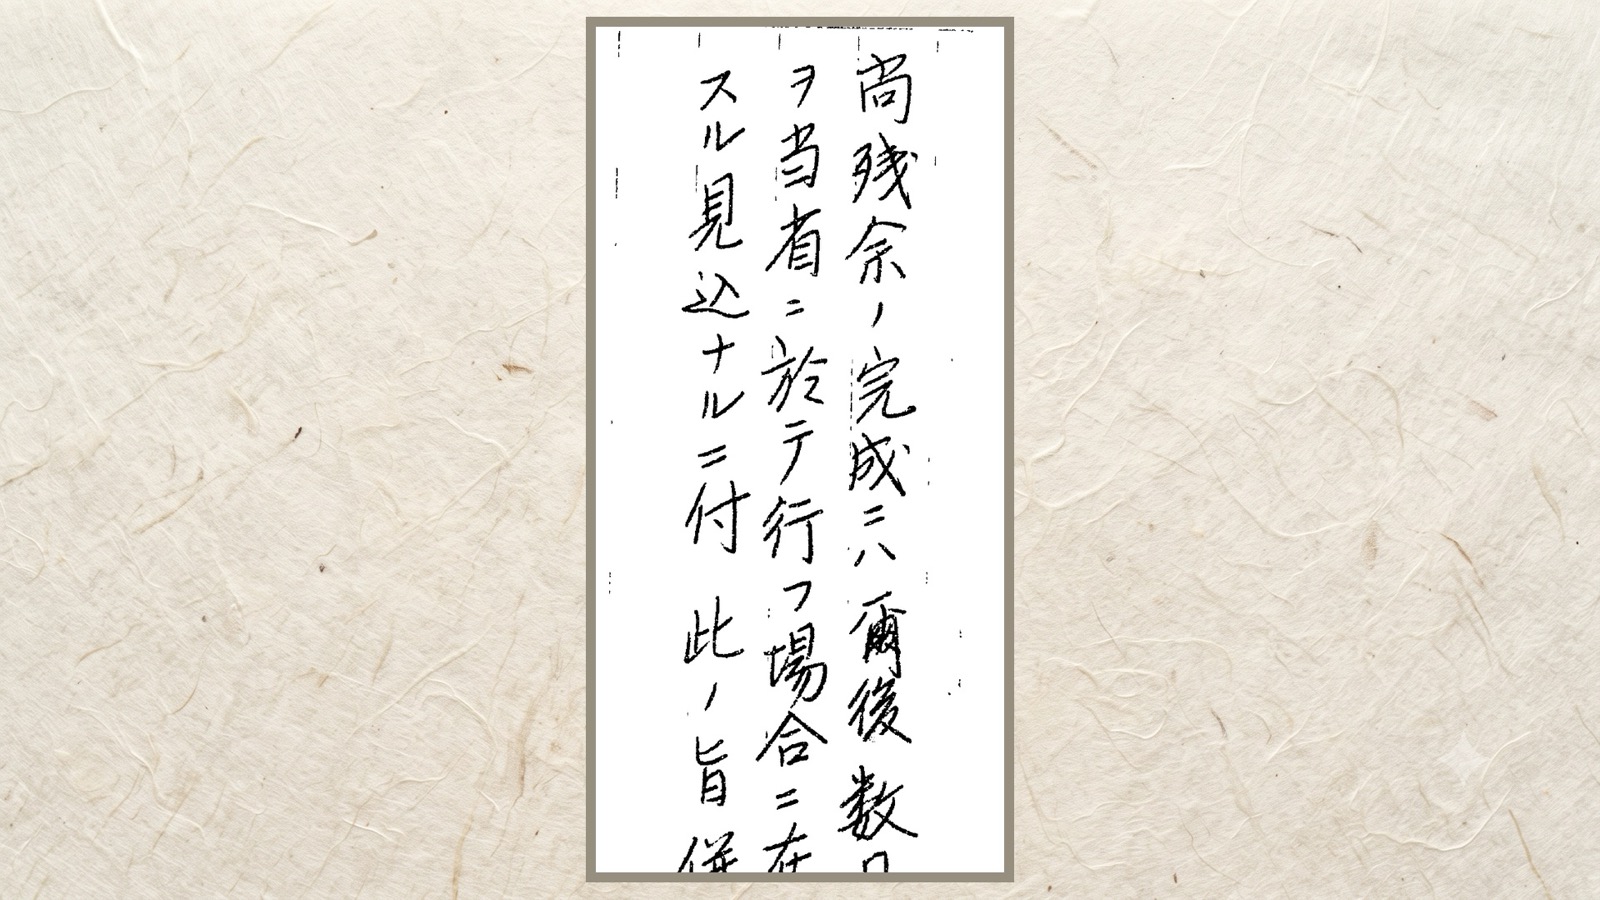 尚残余ノ完成ニハ爾後数
ヲ当省ニ於テ行フ場合ニ在
スル見込ナルニ付 此ノ旨併